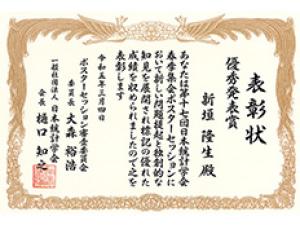 表彰状
優秀発表賞
新垣 隆生 殿
あなたは第十七回日本統計学会
春季集会ポスターセッションに
おいて新しい問題提起と独創的な
知見を展開され標記の優れた
成績を収められましたので之を
表彰します
令和五年三月四日
ポスターセッション審査委員会
委員長 大森 裕浩
一般社団法人 日本統計学会
会長 樋口 知之